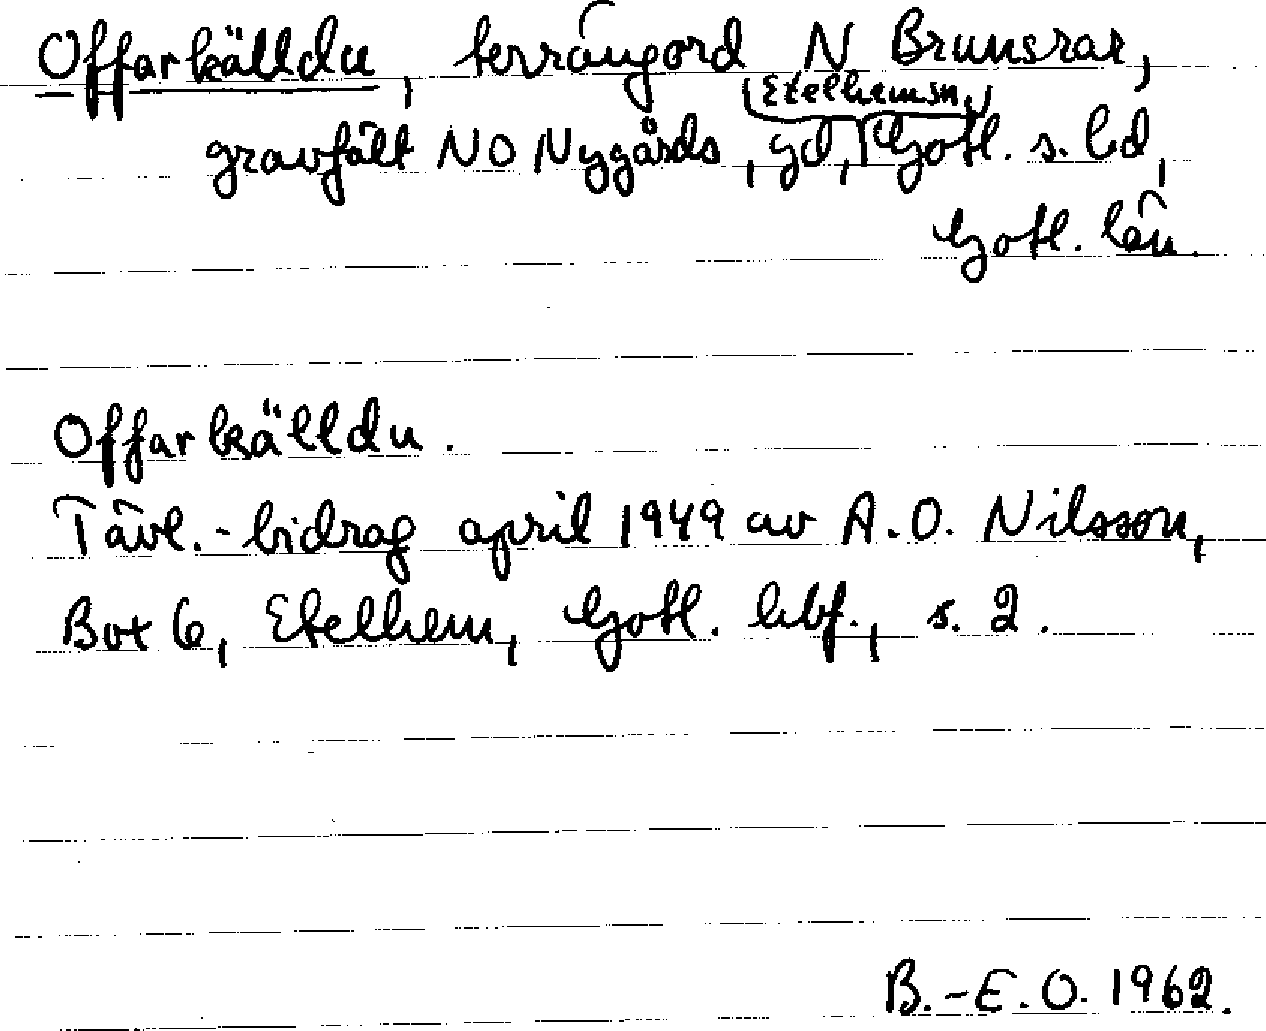 Offarkälldu, terrängord N Brunsrar,
Etelhemsn,
gravfält NO Nygårds, gd, Gotl. s. ld,
Gotl. län.
Offarkälldu.
Tävl.-bidrag april 1949 av A.O. Nilsson,
Box 6, Etelhem, Gotl. hbf., s. 2.
B.-E.O. 1962.